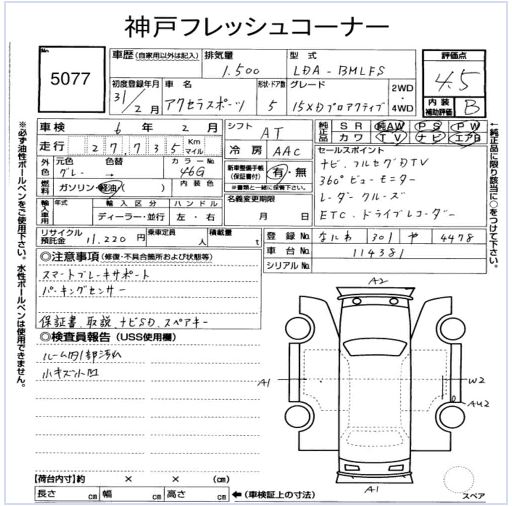 神戸フレッシュコーナー
No. 5077
車歴 (自家用以外は記入)
排気量 1,500
型式 LDA-BMLFS
評価点 4.5
内装補助評価 B
初度登録年月 31年2月
車名 アクセラスポーツ
形状・ドア数 5
グレード 15XDプロアクティブ
2WD・4WD
車検 6年2月
シフト AT
純正品 SR 純AW PS PW
カワ TV ナビ エアB
走行 27,735 Km マイル
冷房 AAC
外色 元色 グレー 色替 カラーNo 46G
燃料 ガソリン・軽油・( ) 内装色
新車整備手帳(保証書付) 有・無
※書類と一緒に保管下さい。
セールスポイント
ナビ フルセグDTV
360°ビューモニター
レーダークルーズ
ETC、ドライブレコーダー
輸入車用 年 輸入区分 ハンドル
ディーラー・並行 左・右
名義変更期限
月 日
リサイクル預託金 11,220円
乗車定員 人
積載量 t
登録No なにわ 301 や 4478
車台No 114381
シリアルNo
◎注意事項 (修復・不具合箇所および状態等)
スマートブレーキサポート
パーキングセンサー
保証書、取説、ナビSD、スペアキー
◎検査員報告 (USS使用欄)
小キズ小凹
A2
A1
W2
AU2
A1
スペア
【荷台内寸】約 × × (cm)
長さ cm 幅 cm 高さ cm ←(車検証上の寸法)
※必ず油性ボールペンをご使用下さい。水性ボールペンは使用できません。
←純正品に限り該当に○をつけて下さい。